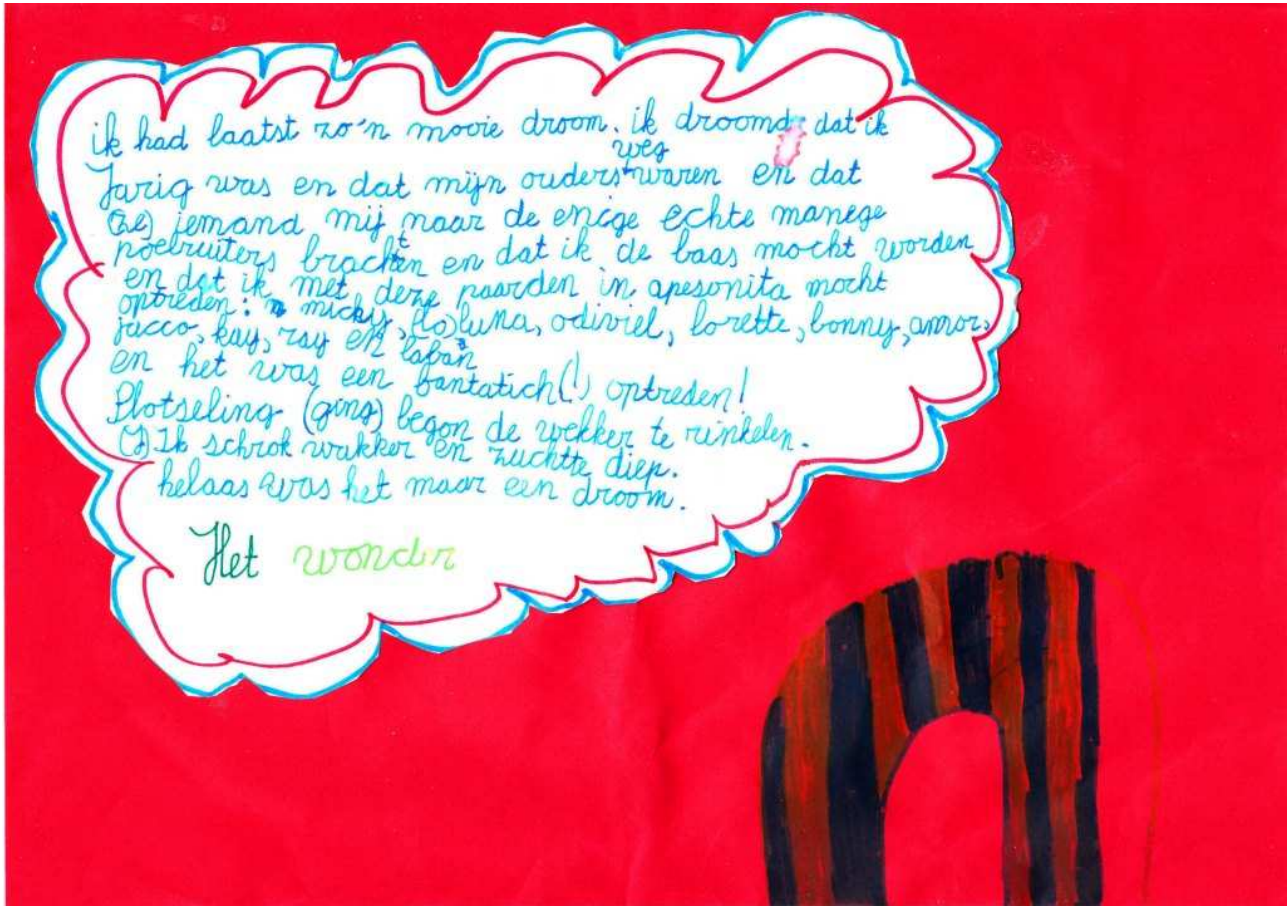 ik had laatst zo'n mooie droom. ik droomd dat ik
weg
Jarig was en dat mijn ouders waren en dat
(ze) jemand mij naar de enige echte manege
poelruiters brachten en dat ik de baas mocht worden
en dat ik met deze paarden in apesonita mocht
optreden: micky, (lo)luna, odiviel, lorette, bonny, amor,
jacco, kay, ray en laban
en het was een fantatich(!) optreden!
Plotseling (ging) begon de wekker te rinkelen.
(J) Ik schrok wakker en zuchtte diep.
helaas was het maar een droom.
Het wonder